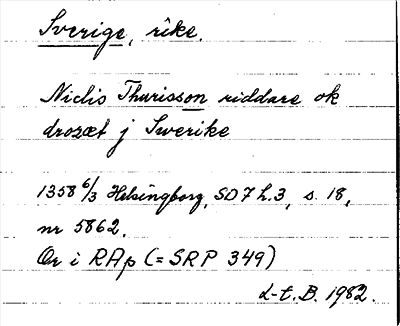 Sverige, rike.
Niclis Thurisson riddare ok
drozæt j Swerike
1358 6/3 Helsingborg, SD 7 h. 3, s. 18,
nr 5862.
Or i RAp (= SRP 349)
L-t. B. 1982.